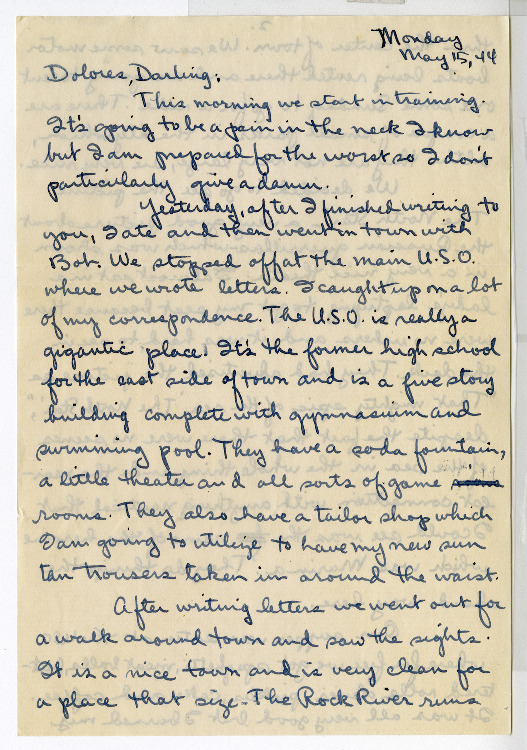 Monday
May 15, 44
Dolores, Darling;
This morning we start in training.
It's going to be a pain in the neck I know
but I am prepared for the worst so I don't
particularly give a damn.
Yesterday, after I finished writing to
you, I ate and then went in town with
Bob. We stopped off at the main U.S.O.
where we wrote letters. I caught up on a lot
of my correspondence. The U.S.O. is really a
gigantic place. It's the former high school
for the east side of town and is a five story
building complete with gymnasium and
swimming pool. They have a soda fountain,
a little theater and all sorts of game
rooms. They also have a tailor shop which
I am going to utilize to have my new sun
tan trousers taken in around the waist.
After writing letters we went out for
a walk around town and saw the sights.
It is a nice town and is very clean for
a place that size. The Rock River runs